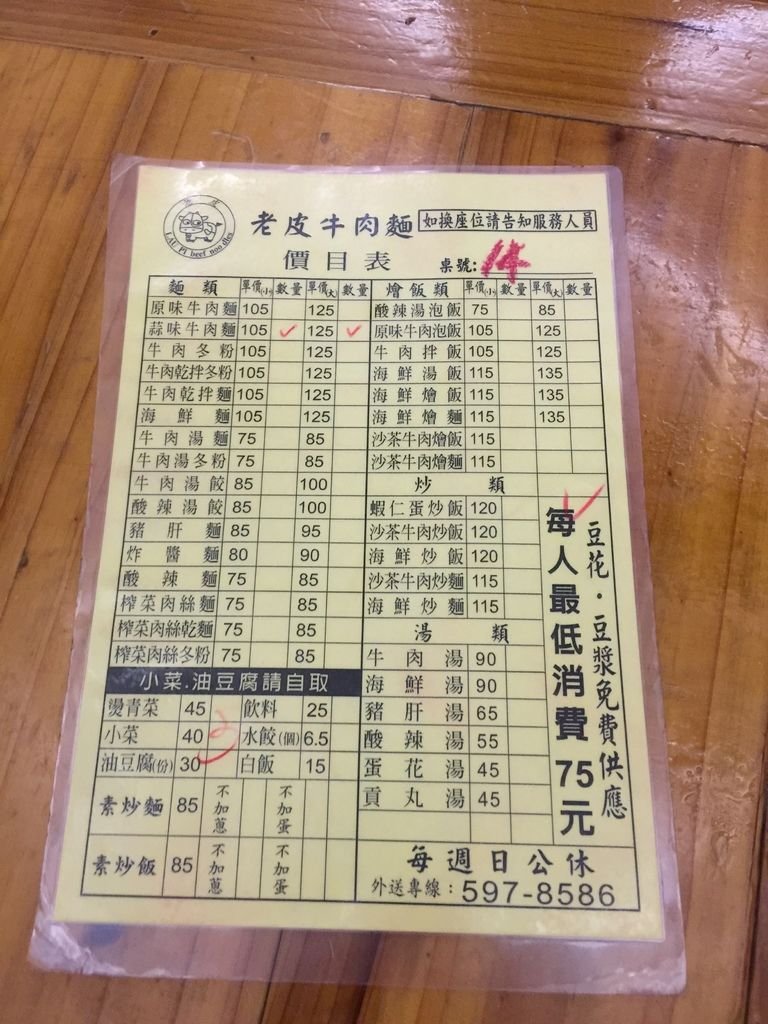 老皮
LAU PI beef noodles
老皮牛肉麵 如換座位請告知服務人員
價目表 桌號: 14
麵類 單價(小) 數量 單價(大) 數量
原味牛肉麵 105 125
蒜味牛肉麵 105 ✓ 125 ✓
牛肉冬粉 105 125
牛肉乾拌冬粉 105 125
牛肉乾拌麵 105 125
海鮮麵 105 125
牛肉湯麵 75 85
牛肉湯冬粉 75 85
牛肉湯餃 85 100
酸辣湯餃 85 100
豬肝麵 85 95
炸醬麵 80 90
酸辣麵 75 85
榨菜肉絲麵 75 85
榨菜肉絲乾麵 75 85
榨菜肉絲冬粉 75 85
小菜.油豆腐請自取
燙青菜 45 飲料 25
小菜 40 水餃(個) 6.5
油豆腐(份) 30 白飯 15
素炒麵 85 不加蔥 不加蛋
素炒飯 85 不加蔥 不加蛋
燴飯類 單價(小) 數量 單價(大) 數量
酸辣湯泡飯 75 85
原味牛肉泡飯 105 125
牛肉拌飯 105 125
海鮮湯飯 115 135
海鮮燴飯 115 135
海鮮燴麵 115 135
沙茶牛肉燴飯 115
沙茶牛肉燴麵 115
炒類
蝦仁蛋炒飯 120
沙茶牛肉炒飯 120
海鮮炒飯 120
沙茶牛肉炒麵 115
海鮮炒麵 115
湯類
牛肉湯 90
海鮮湯 90
豬肝湯 65
酸辣湯 55
蛋花湯 45
貢丸湯 45
豆花·豆漿免費供應
每人最低消費75元
每週日公休
外送專線：597-8586